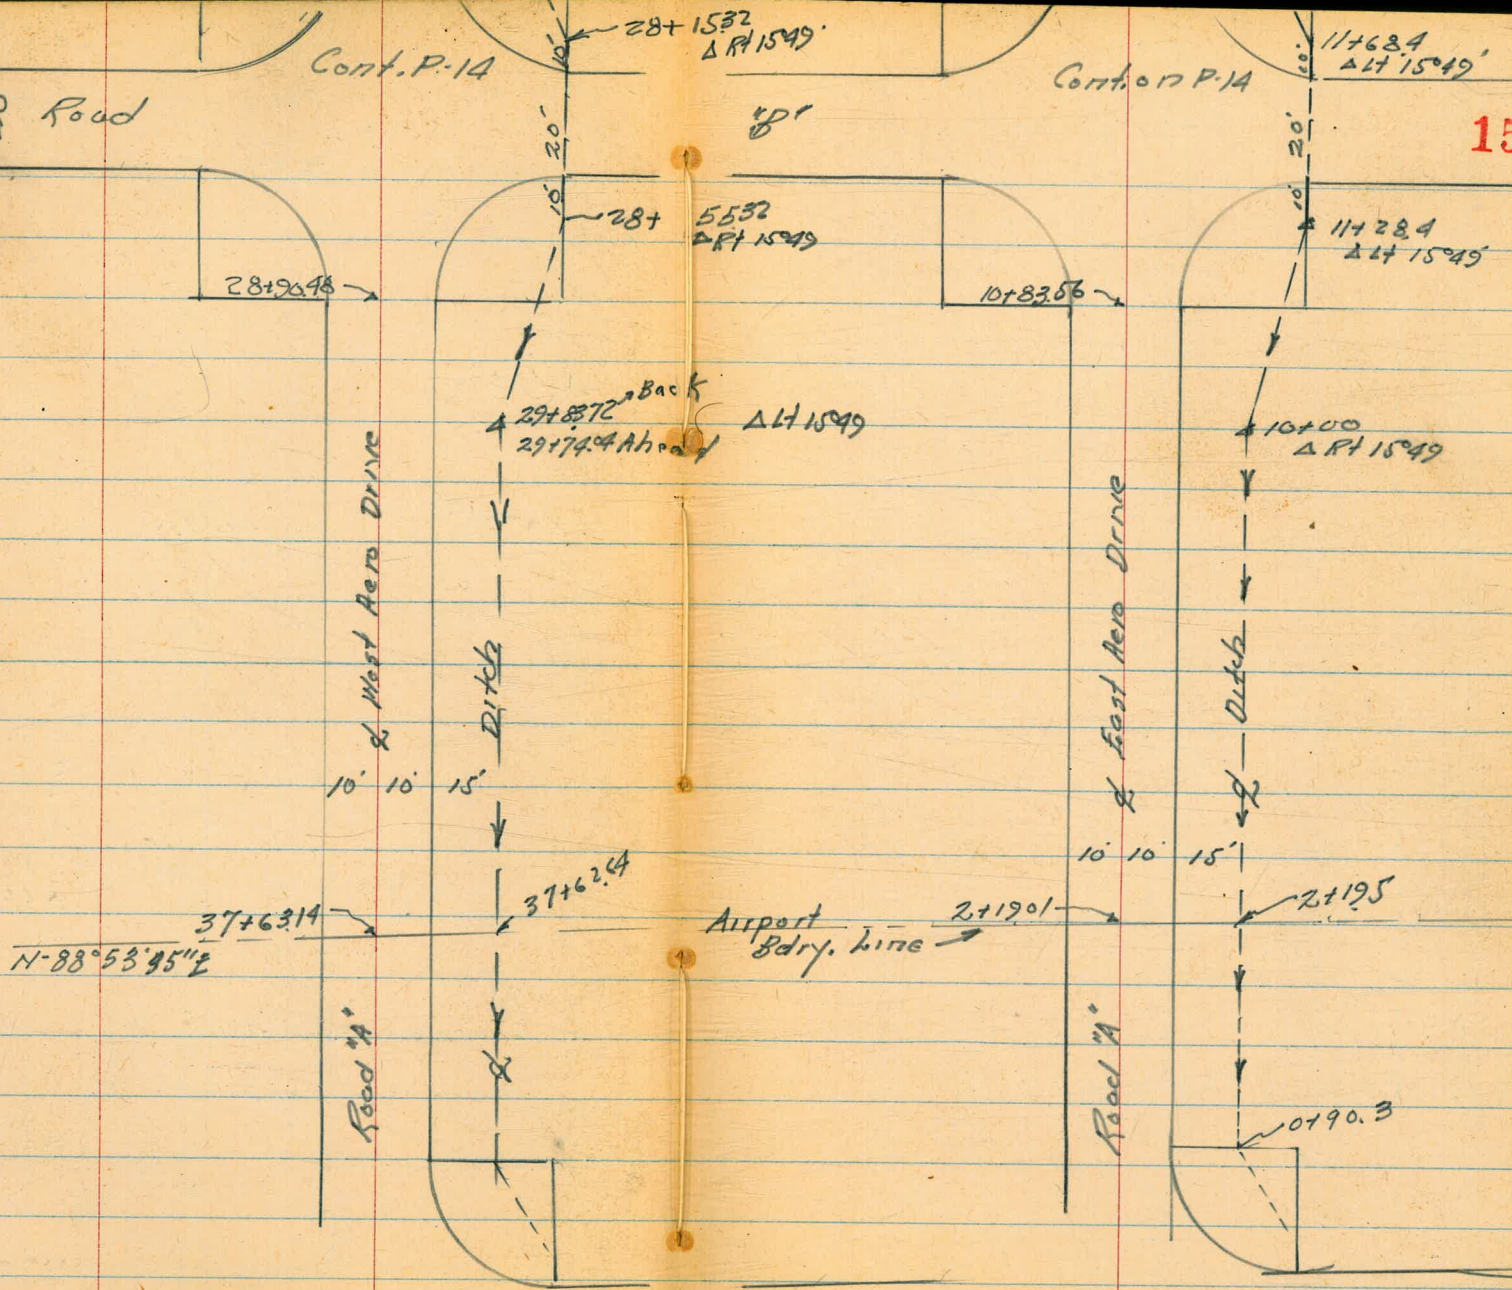 28+15.32
Δ Rt 15°49'
Cont. P-14
10'
11+68.4
Δ Lt 15°49'
Cont. on P-14
10'
Road
20'
"B"
20'
15
10'
28+ 55.32
Δ Rt 15°49
10'
11+28.4
Δ Lt 15°49'
28+90.48
10+83.56
29+83.72 Back
29+74.04 Ahead
Δ Lt 15°49
10+00
Δ Rt 15°49
℄ West Aero Drive
Ditch
℄ East Aero Drive
℄ Ditch
10' 10' 15'
10' 10' 15'
37+63.14
37+62.64
Airport
Bdry. Line
2+19.01
2+19.5
N-88°53'45"E
Road "A"
℄
Road "A"
0+90.3